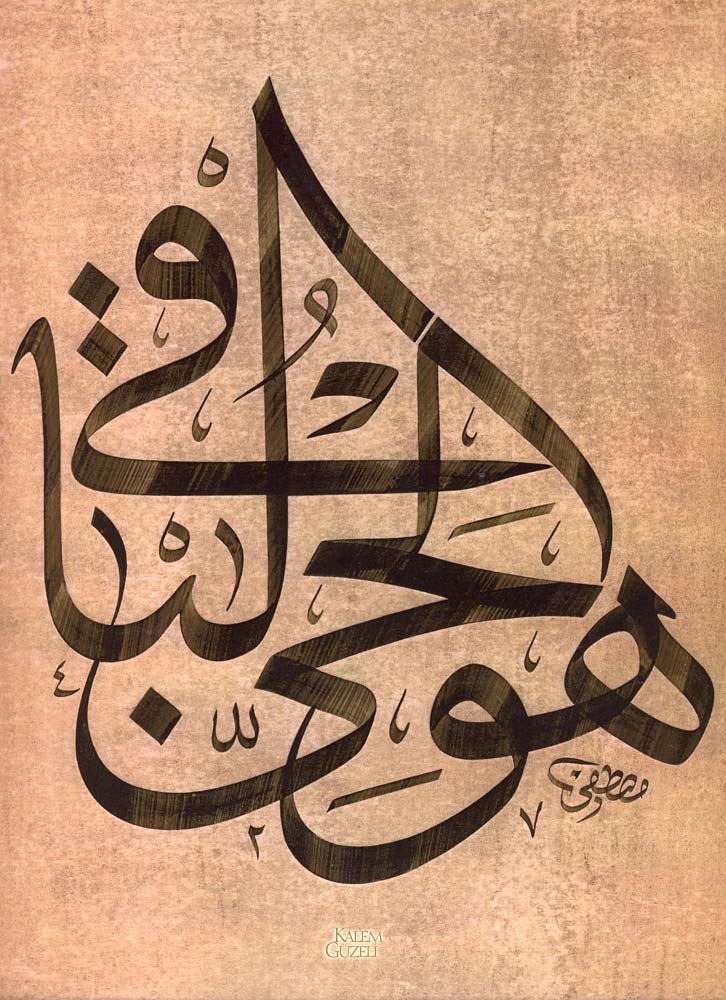 هو الحي الباقي
مصطفى
KALEM
GÜZELİ